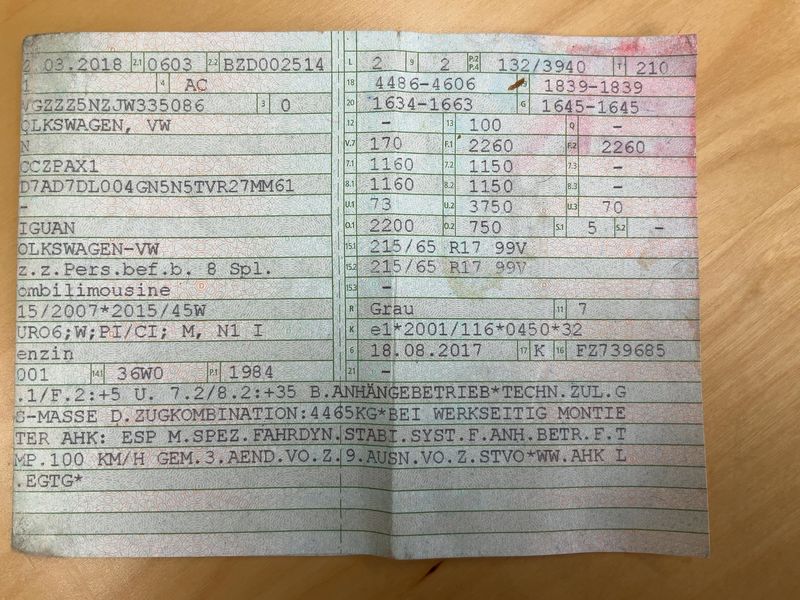 2 .03.2018 2.1 0603 2.2 BZD002514
1 4 AC
VGZZZ5NZJW335086 3 0
OLKSWAGEN, VW
N
CCZPAX1
D7AD7DL004GN5N5TVR27MM61
-
IGUAN
OLKSWAGEN-VW
z.z.Pers.bef.b. 8 Spl.
ombilimousine
15/2007*2015/45W
URO6;W;PI/CI; M, N1 I
enzin
001 14.1 36W0 P.1 1984
L 2 9 2 P.2 P.4 132/3940 T 210
18 4486-4606 19 1839-1839
20 1634-1663 G 1645-1645
12 - 13 100 Q -
V.7 170 F.1 2260 F.2 2260
7.1 1160 7.2 1150 7.3 -
8.1 1160 8.2 1150 8.3 -
U.1 73 U.2 3750 U.3 70
O.1 2200 O.2 750 S.1 5 S.2 -
15.1 215/65 R17 99V
15.2 215/65 R17 99V
15.3 -
R Grau 11 7
K e1*2001/116*0450*32
6 18.08.2017 17 K 16 FZ739685
21 -
.1/F.2:+5 U. 7.2/8.2:+35 B.ANHÄNGEBETRIEB*TECHN.ZUL.G
S-MASSE D.ZUGKOMBINATION:4465KG*BEI WERKSEITIG MONTIE
TER AHK: ESP M.SPEZ.FAHRDYN.STABI.SYST.F.ANH.BETR.F.T
MP.100 KM/H GEM.3.AEND.VO.Z.9.AUSN.VO.Z.STVO*WW.AHK L
.EGTG*